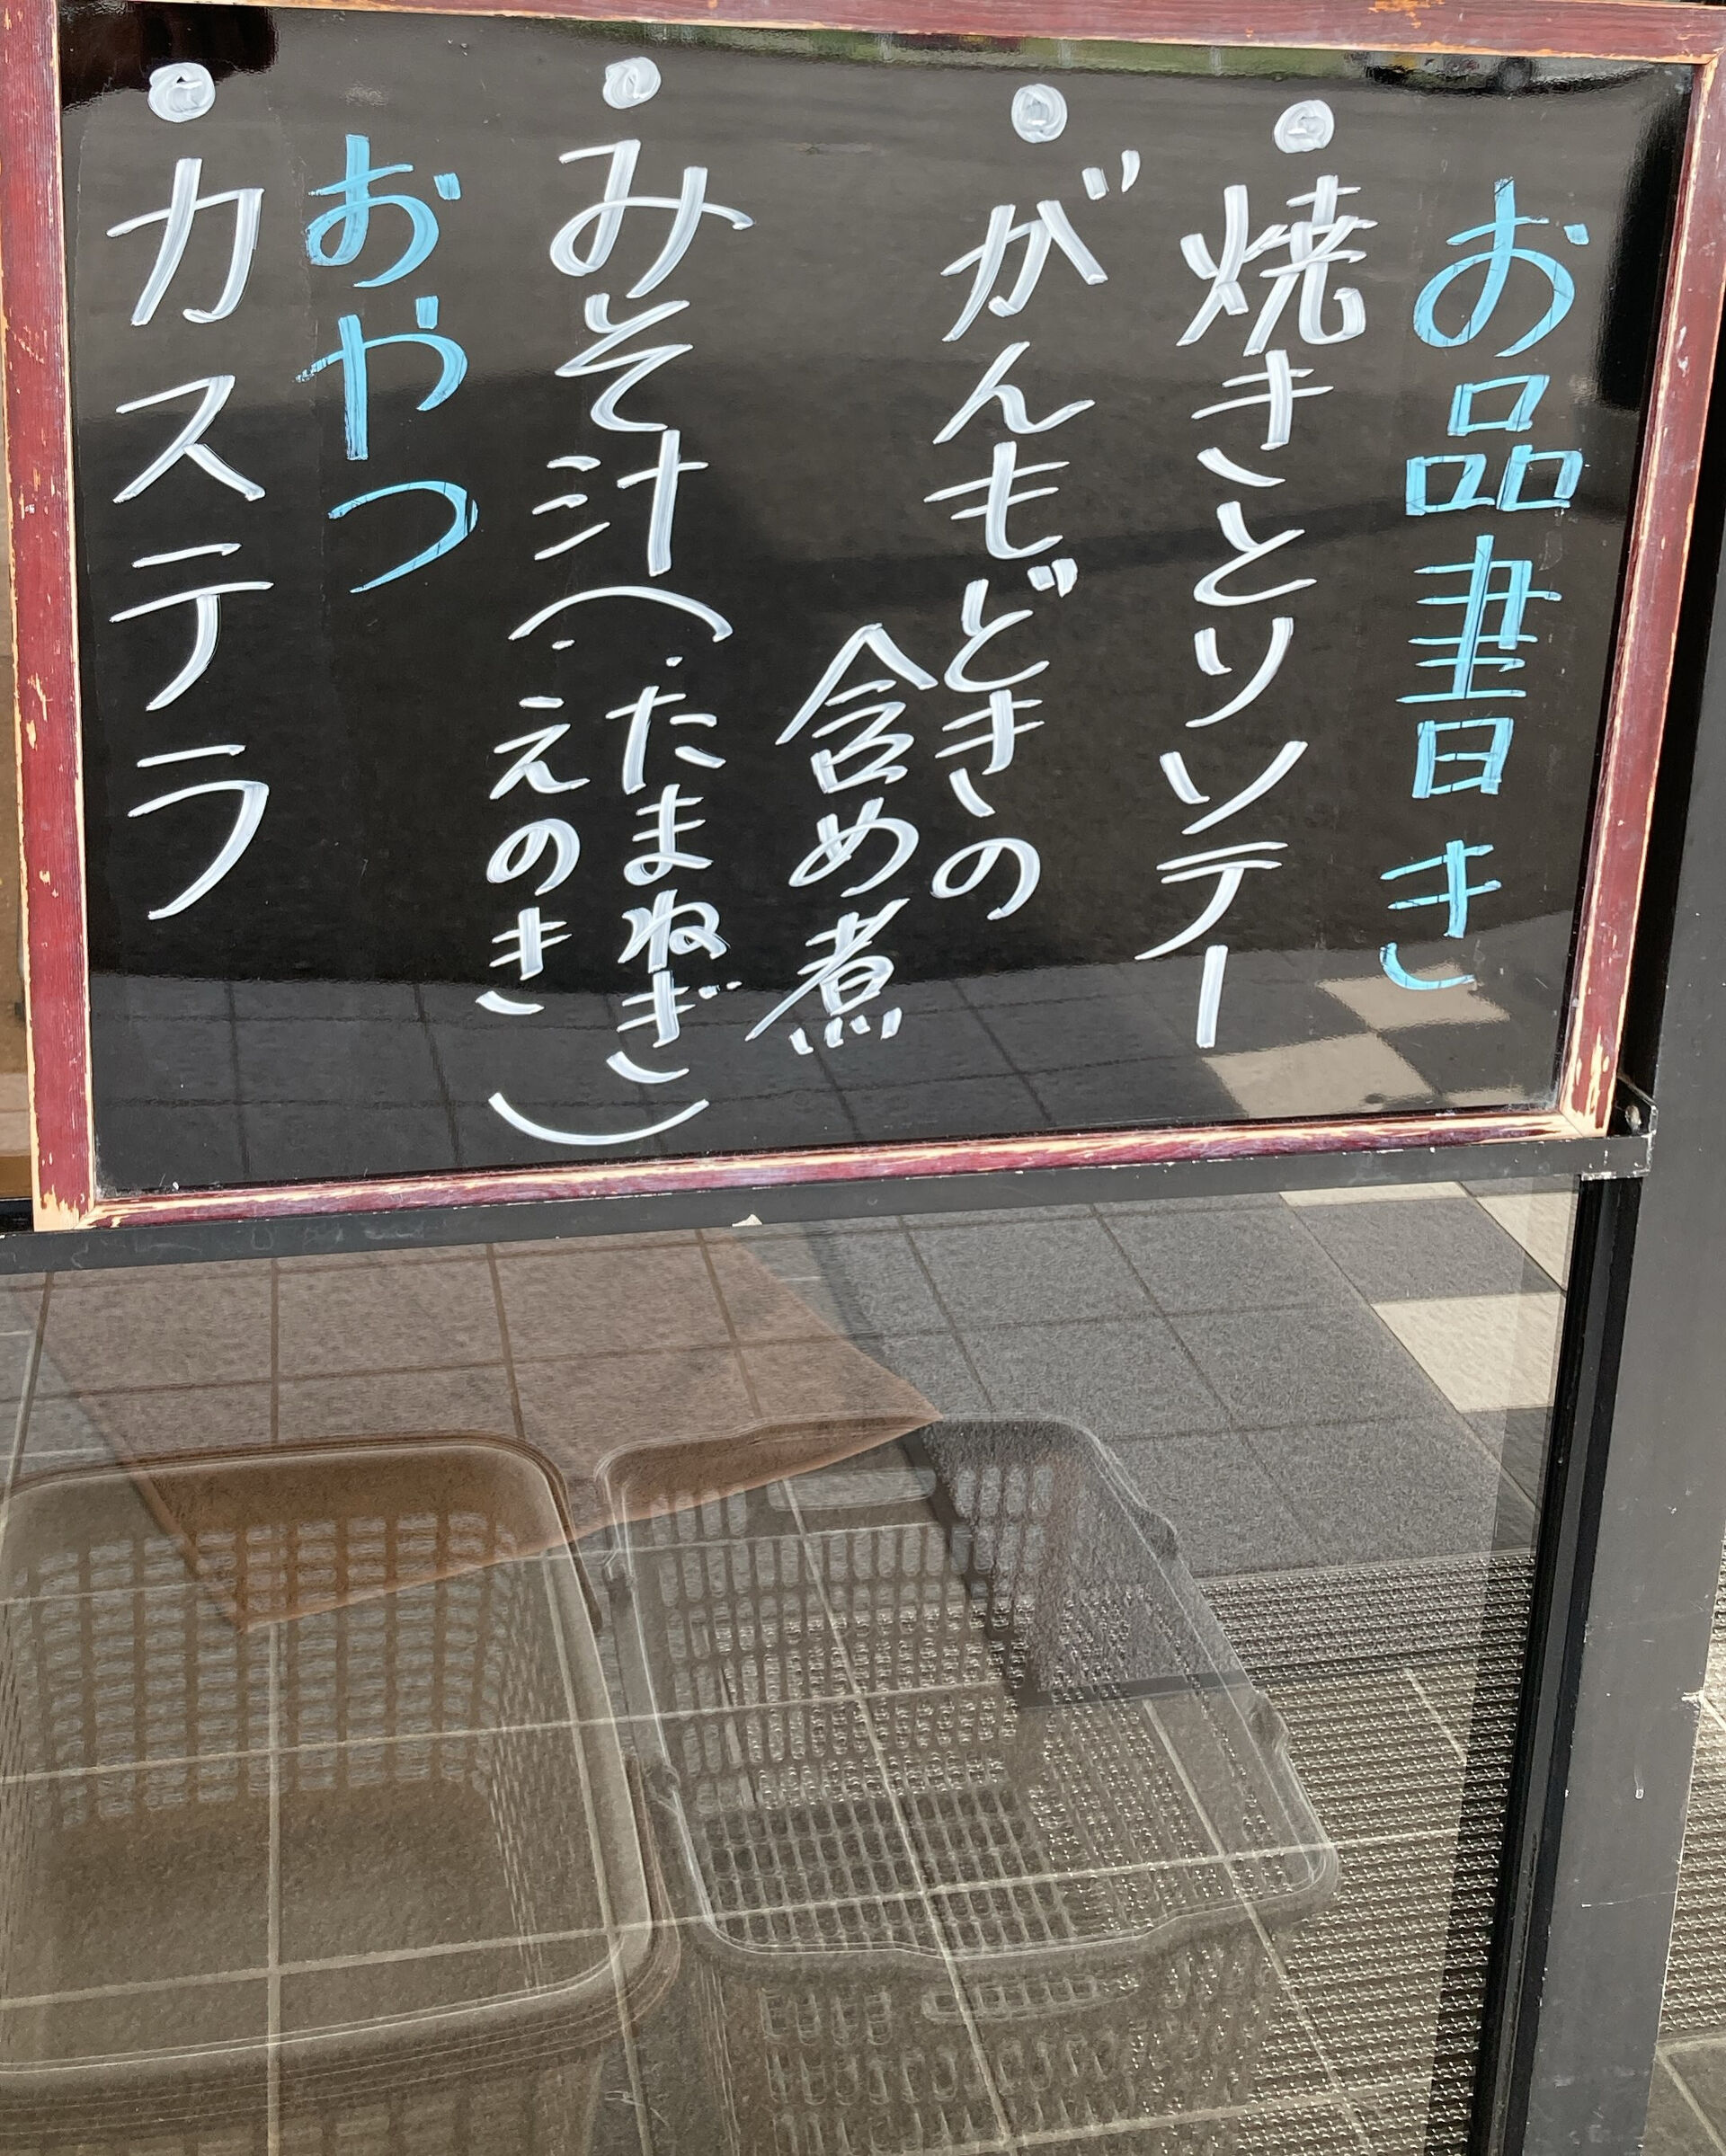 お品書き
●焼きとりソテー
●がんもどきの
含め煮
●みそ汁(・たまねぎ
・えのき)
おやつ
●カステラ